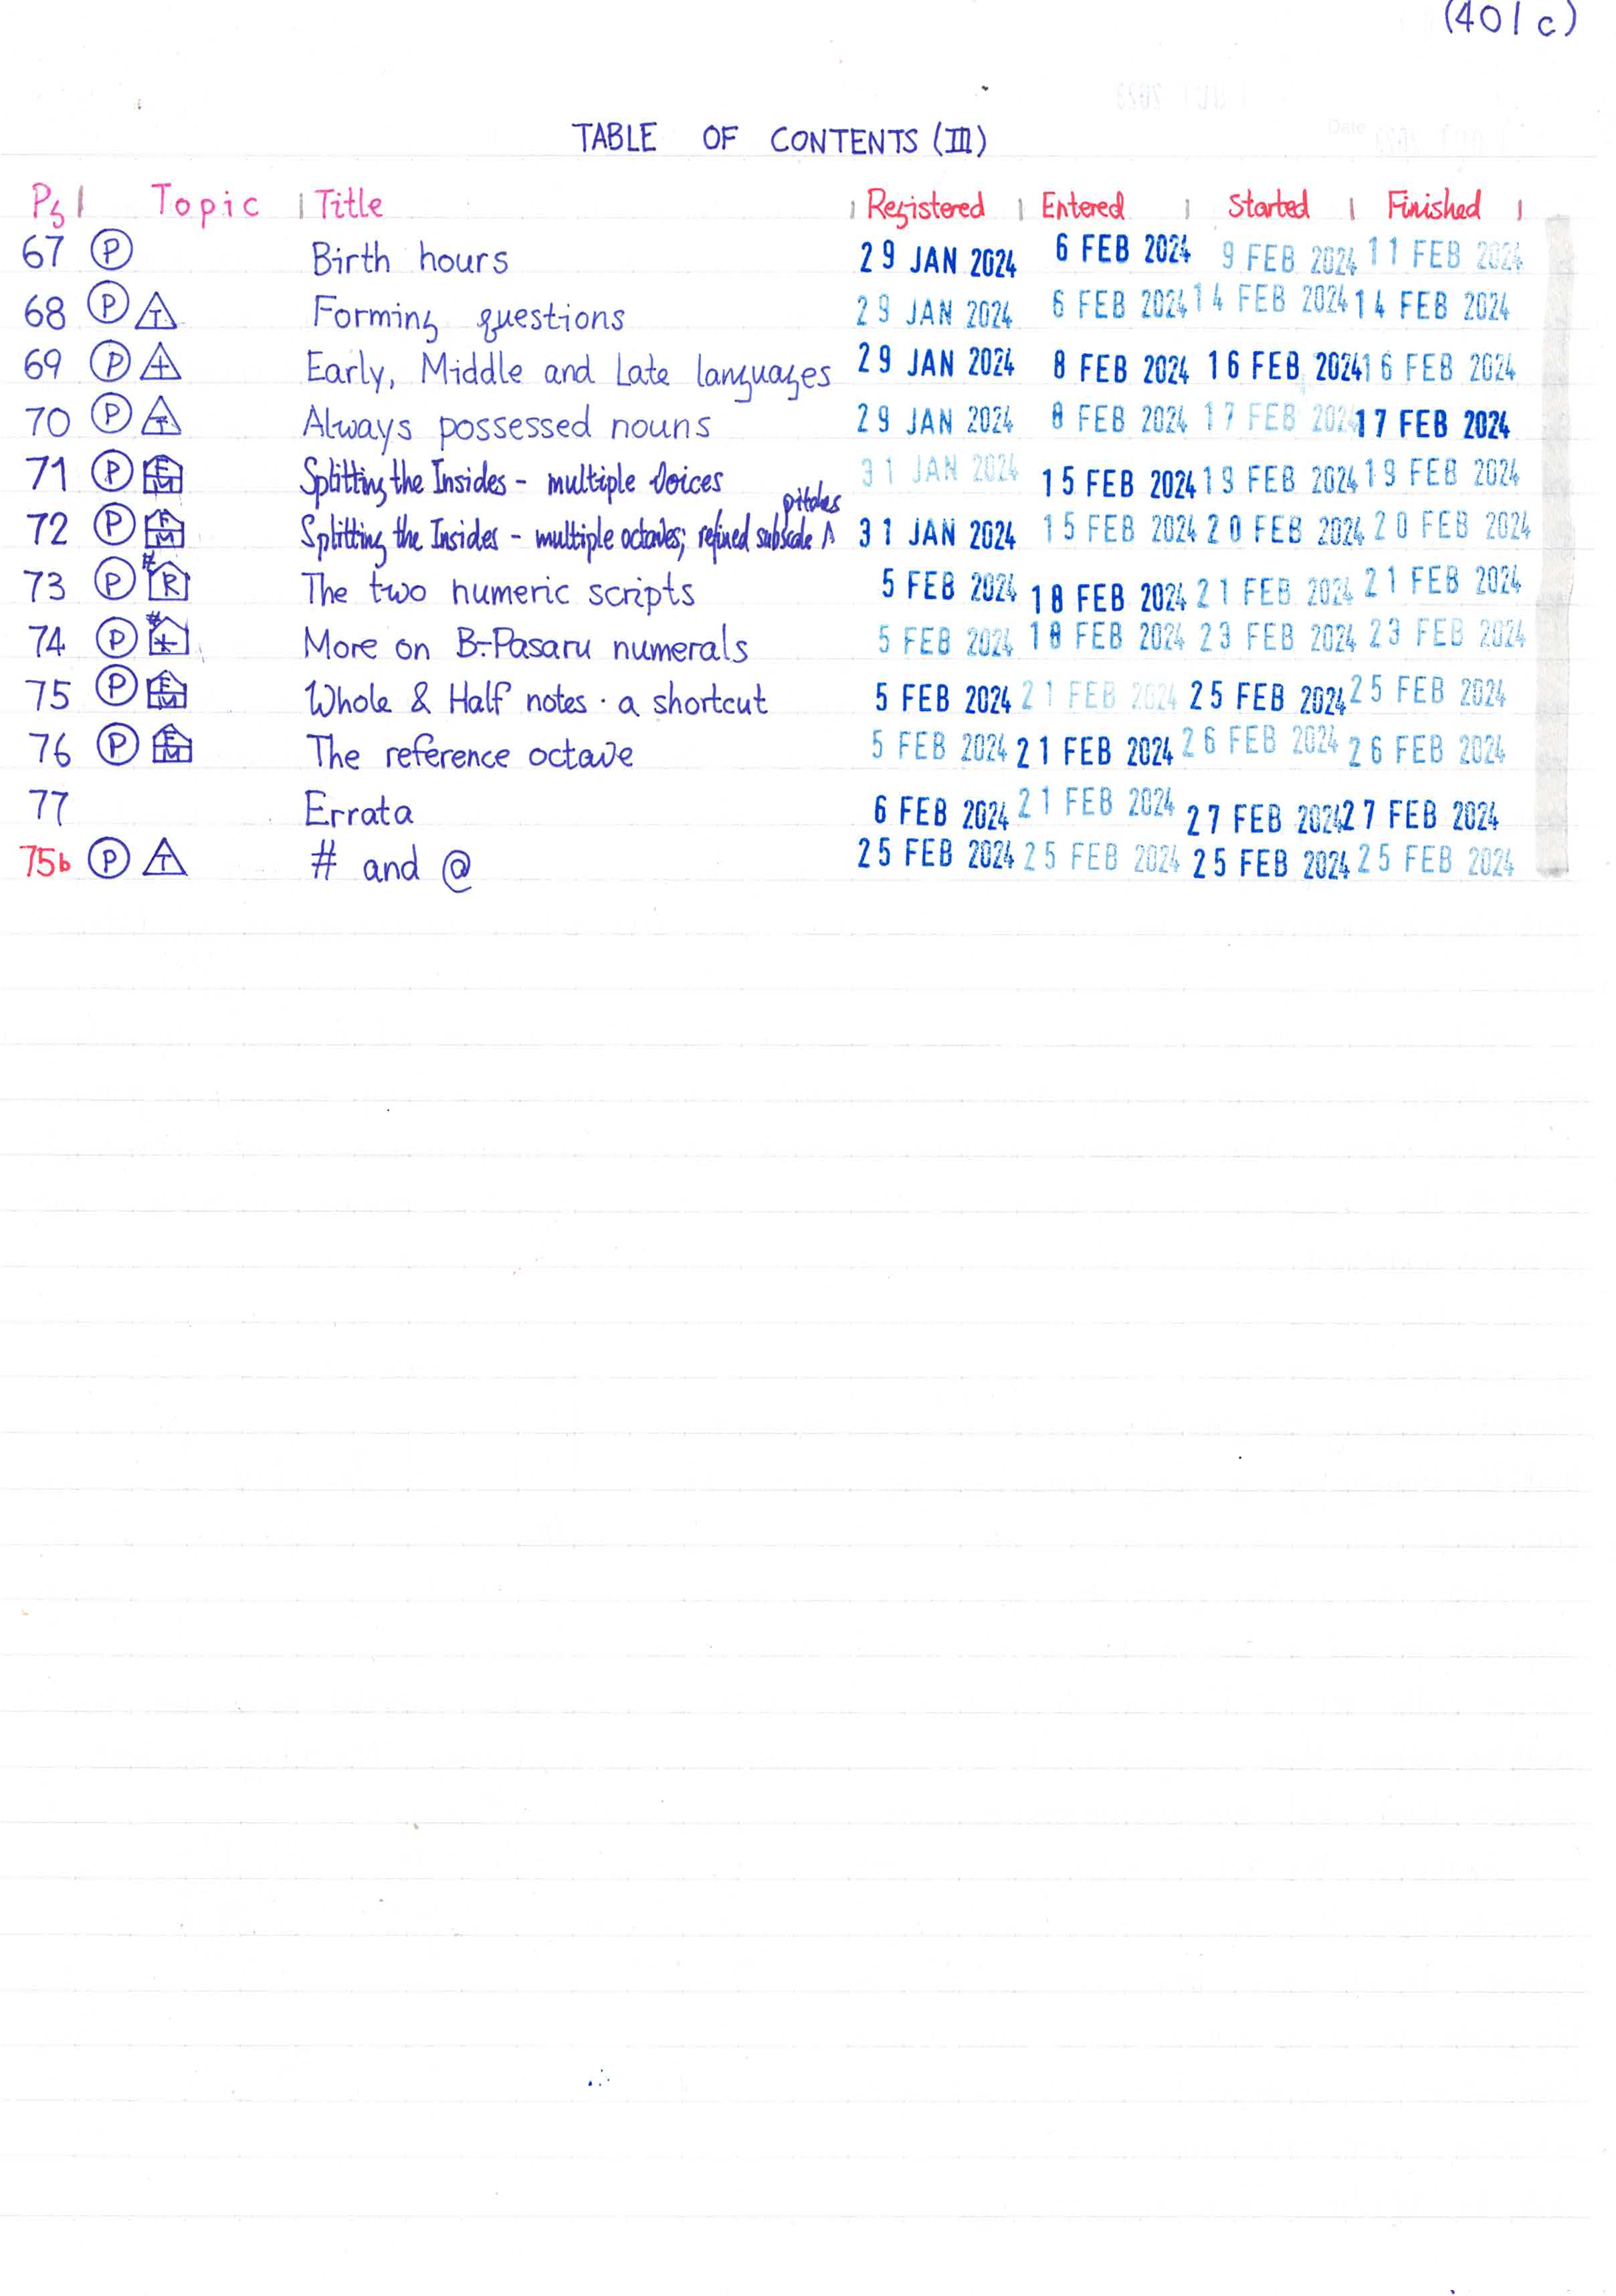 (401c)
TABLE OF CONTENTS (III)
Pg | Topic | Title | Registered | Entered | Started | Finished |
67 P Birth hours 29 JAN 2024 6 FEB 2024 9 FEB 2024 11 FEB 2024
68 P T Forming questions 29 JAN 2024 6 FEB 2024 14 FEB 2024 14 FEB 2024
69 P + Early, Middle and Late languages 29 JAN 2024 8 FEB 2024 16 FEB 2024 16 FEB 2024
70 P T Always possessed nouns 29 JAN 2024 8 FEB 2024 17 FEB 2024 17 FEB 2024
71 P E M Splitting the Insides - multiple voices 31 JAN 2024 15 FEB 2024 19 FEB 2024 19 FEB 2024
72 P E M Splitting the Insides - multiple octaves; refined subscale pitches 31 JAN 2024 15 FEB 2024 20 FEB 2024 20 FEB 2024
73 P # R The two numeric scripts 5 FEB 2024 18 FEB 2024 21 FEB 2024 21 FEB 2024
74 P # More on B:-Pasaru numerals 5 FEB 2024 18 FEB 2024 23 FEB 2024 23 FEB 2024
75 P E M Whole & Half notes · a shortcut 5 FEB 2024 21 FEB 2024 25 FEB 2024 25 FEB 2024
76 P E M The reference octave 5 FEB 2024 21 FEB 2024 26 FEB 2024 26 FEB 2024
77 Errata 6 FEB 2024 21 FEB 2024 27 FEB 2024 27 FEB 2024
75b P T # and @ 25 FEB 2024 25 FEB 2024 25 FEB 2024 25 FEB 2024